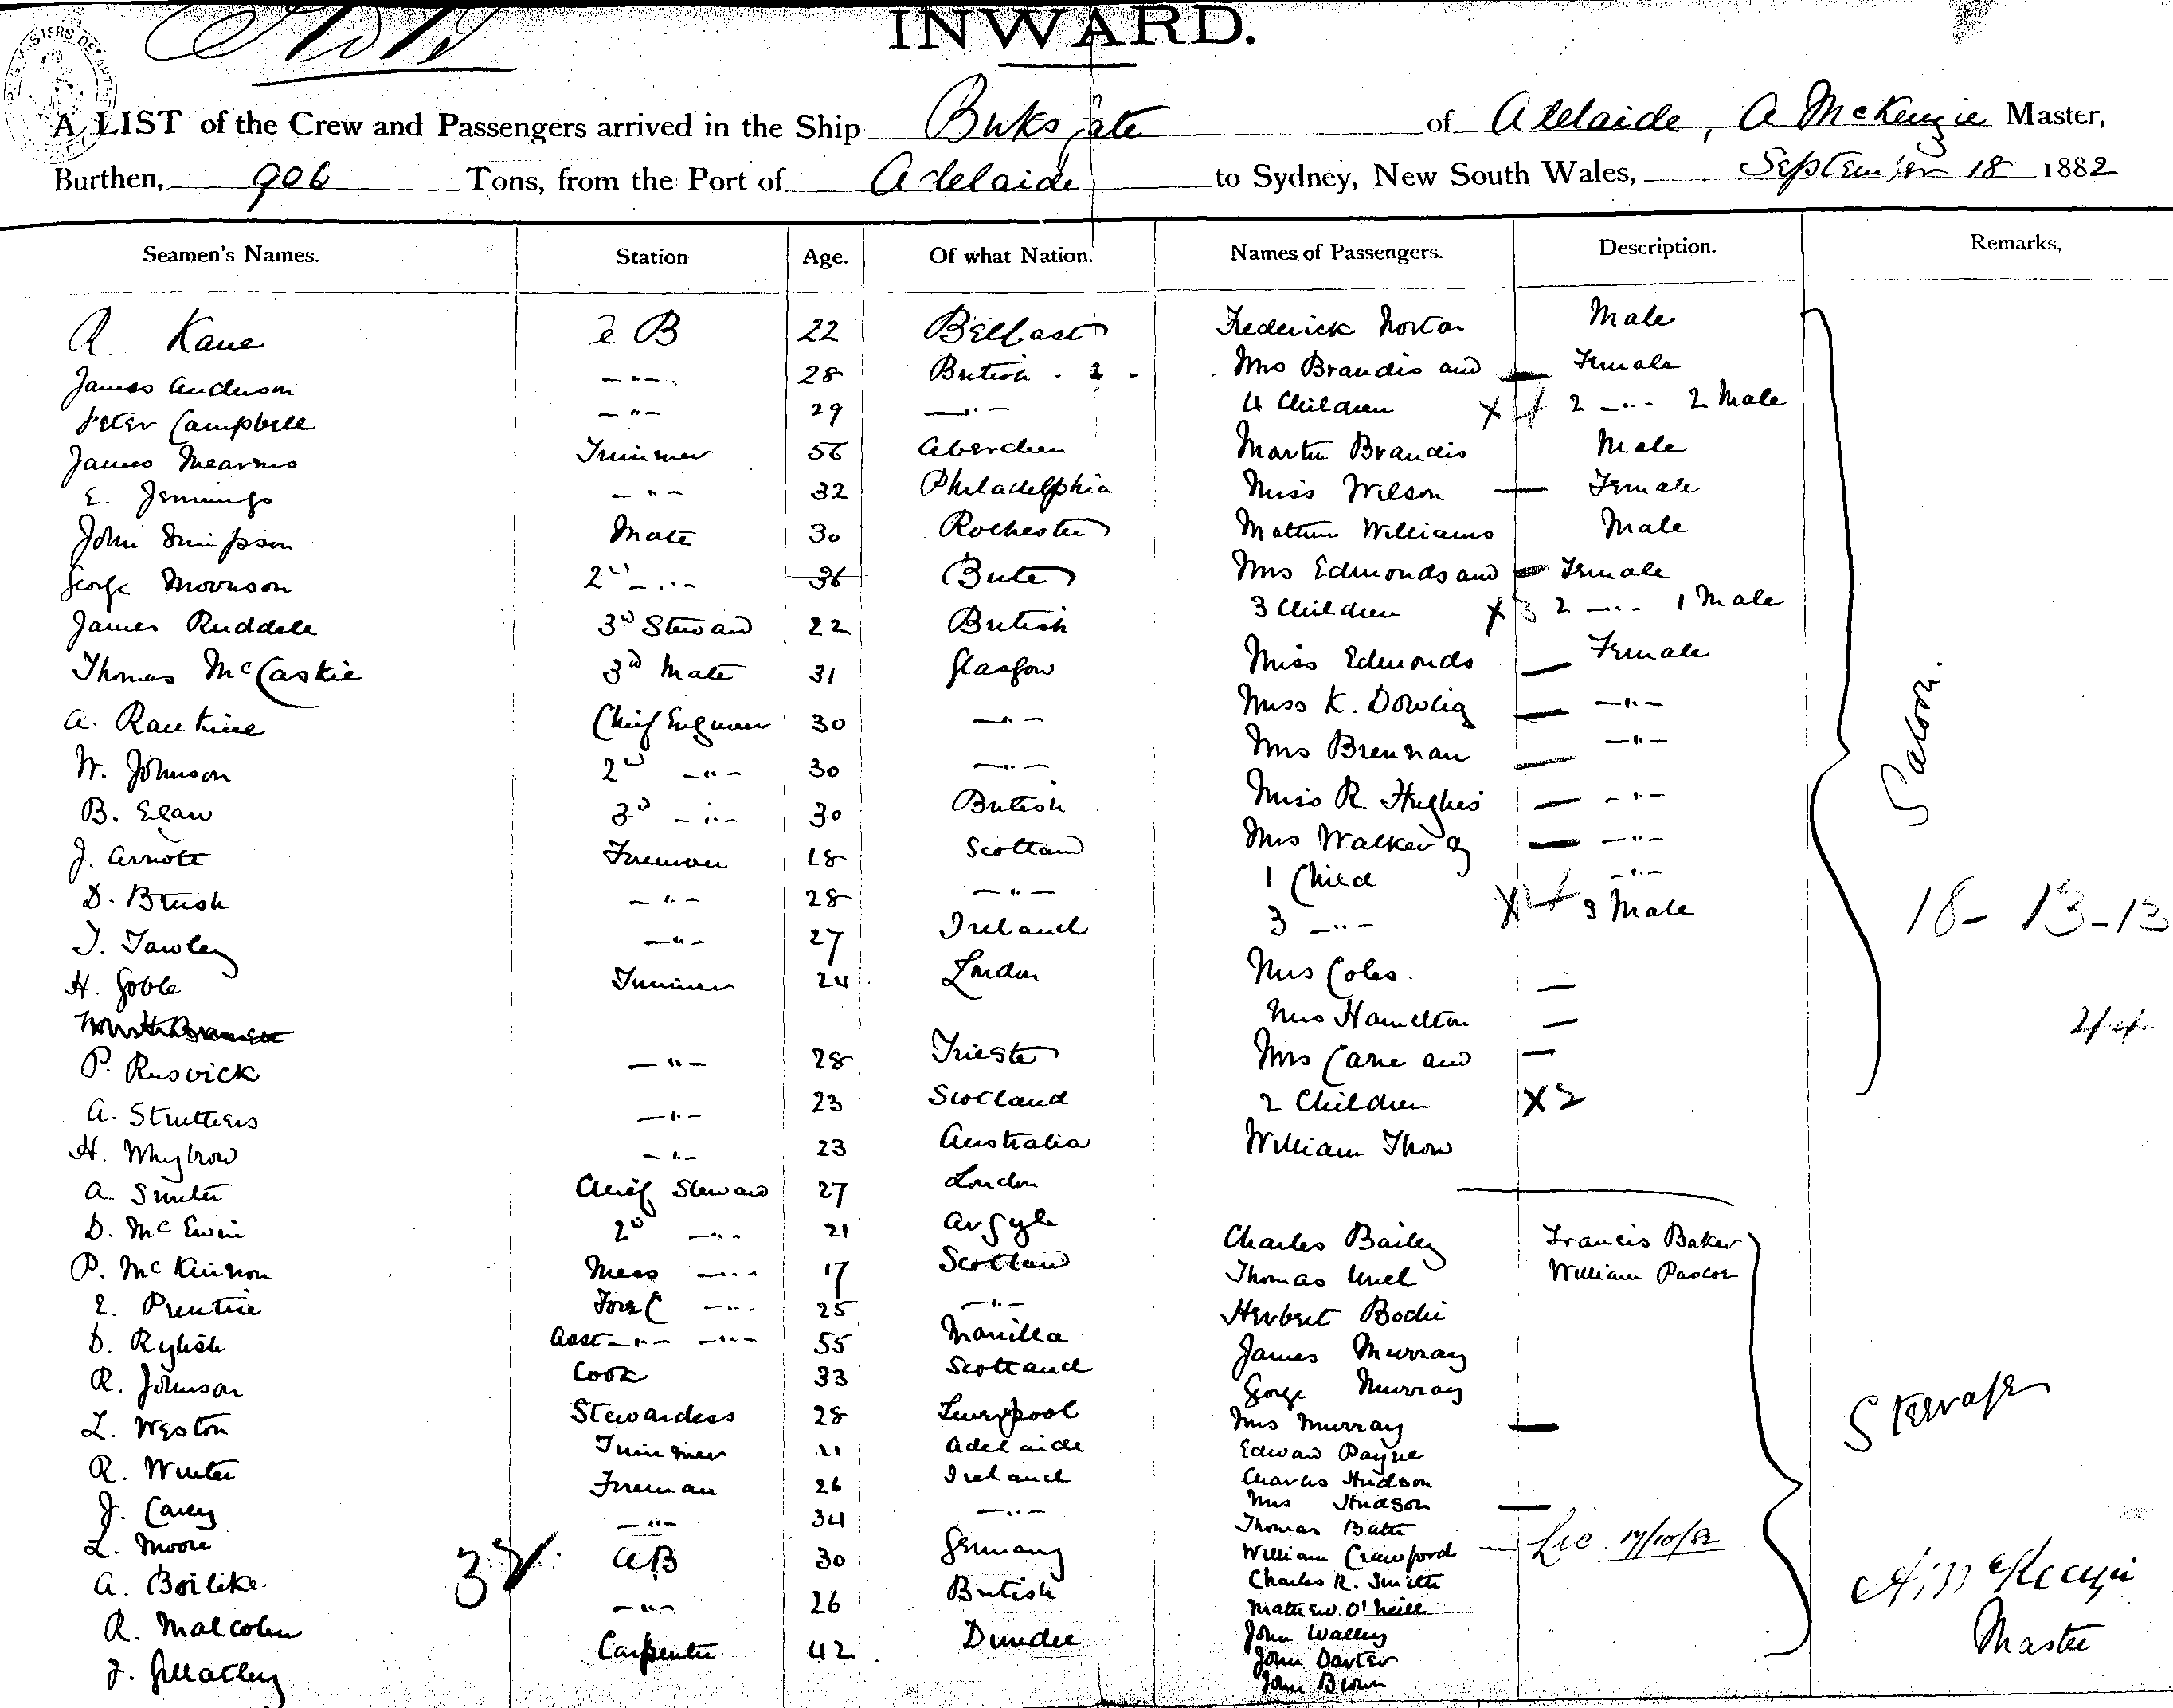 INWARD.
A LIST of the Crew and Passengers arrived in the Ship Buksgate of Adelaide, A McKenzie Master,
Burthen, 906 Tons, from the Port of Adelaide to Sydney, New South Wales, September 18 1882
Seamen's Names. Station Age. Of what Nation. Names of Passengers. Description. Remarks,
R. Kane a B 22 Belfast Frederick Norton Male
James Anderson - " - 28 British Mrs Brandis and Female
Peter Campbell - " - 29 - " - 4 Children X 4 2 - " - 2 Male
James Mearns Trimmer 56 Aberdeen Martin Brandis Male
E. Jennings - " - 32 Philadelphia Miss Wilson Female
John Simpson Mate 30 Rochester Mathew Williams Male
George Morrison 2nd - " - 36 Bute Mrs Edmonds and Female
James Ruddele 3rd Steward 22 British 3 Children X 3 2 - " - 1 Male
Thomas McCaskie 3rd Mate 31 Glasgow Miss Edmonds Female
A. Rankine Chief Engineer 30 - " - Miss K. Dowlig - " -
W. Johnson 2nd - " - 30 - " - Mrs Brennan - " -
B. Egan 3rd - " - 30 British Miss R. Hughes - " -
J. Arnott Fireman 18 Scotland Mrs Walker & - " -
D. Brush - " - 28 - " - 1 Child - " -
T. Tawley - " - 27 Ireland 3 - " - X 4 3 Male
Saloon.
18 - 13 - 13
H. Goble Trimmer 24 London Mrs Coles.
Mrs Hamilton
44
P. Rusvick - " - 28 Trieste Mrs Cane and
A. Struthers - " - 23 Scotland 2 Children X 2
H. Whybrow - " - 23 Australia William Thow
A. Smith Chief Steward 27 London
D. McEwin 2nd - " - 21 Argyle Charles Bailey Francis Baker
P. McKinnon Mess - " - 17 Scotland Thomas William Pascoe
E. Prentice Fore C - " - 25 - " - Herbert Bodie
D. Rylish Asst - " - - " - 55 Manilla James Murray
R. Johnson Cook 33 Scotland George Murray
L. Weston Stewardess 28 Liverpool Mrs Murray
Steerage
R. Winter Trimmer 21 Adelaide Edward Payne
J. Carey Fireman 26 Ireland Charles Hudson
Mrs Hudson
L. Moore - " - 34 - " - Thomas Bath
A. Boilike a B 30 Germany William Crawford - Lic. 17/10/82
Charles R. Smith
R. Malcolm - " - 26 British Mathew O'Neill
J. Gillatley Carpenter 42 Dundee John Walley
John Darter
John Brown
A McKenzie
Master